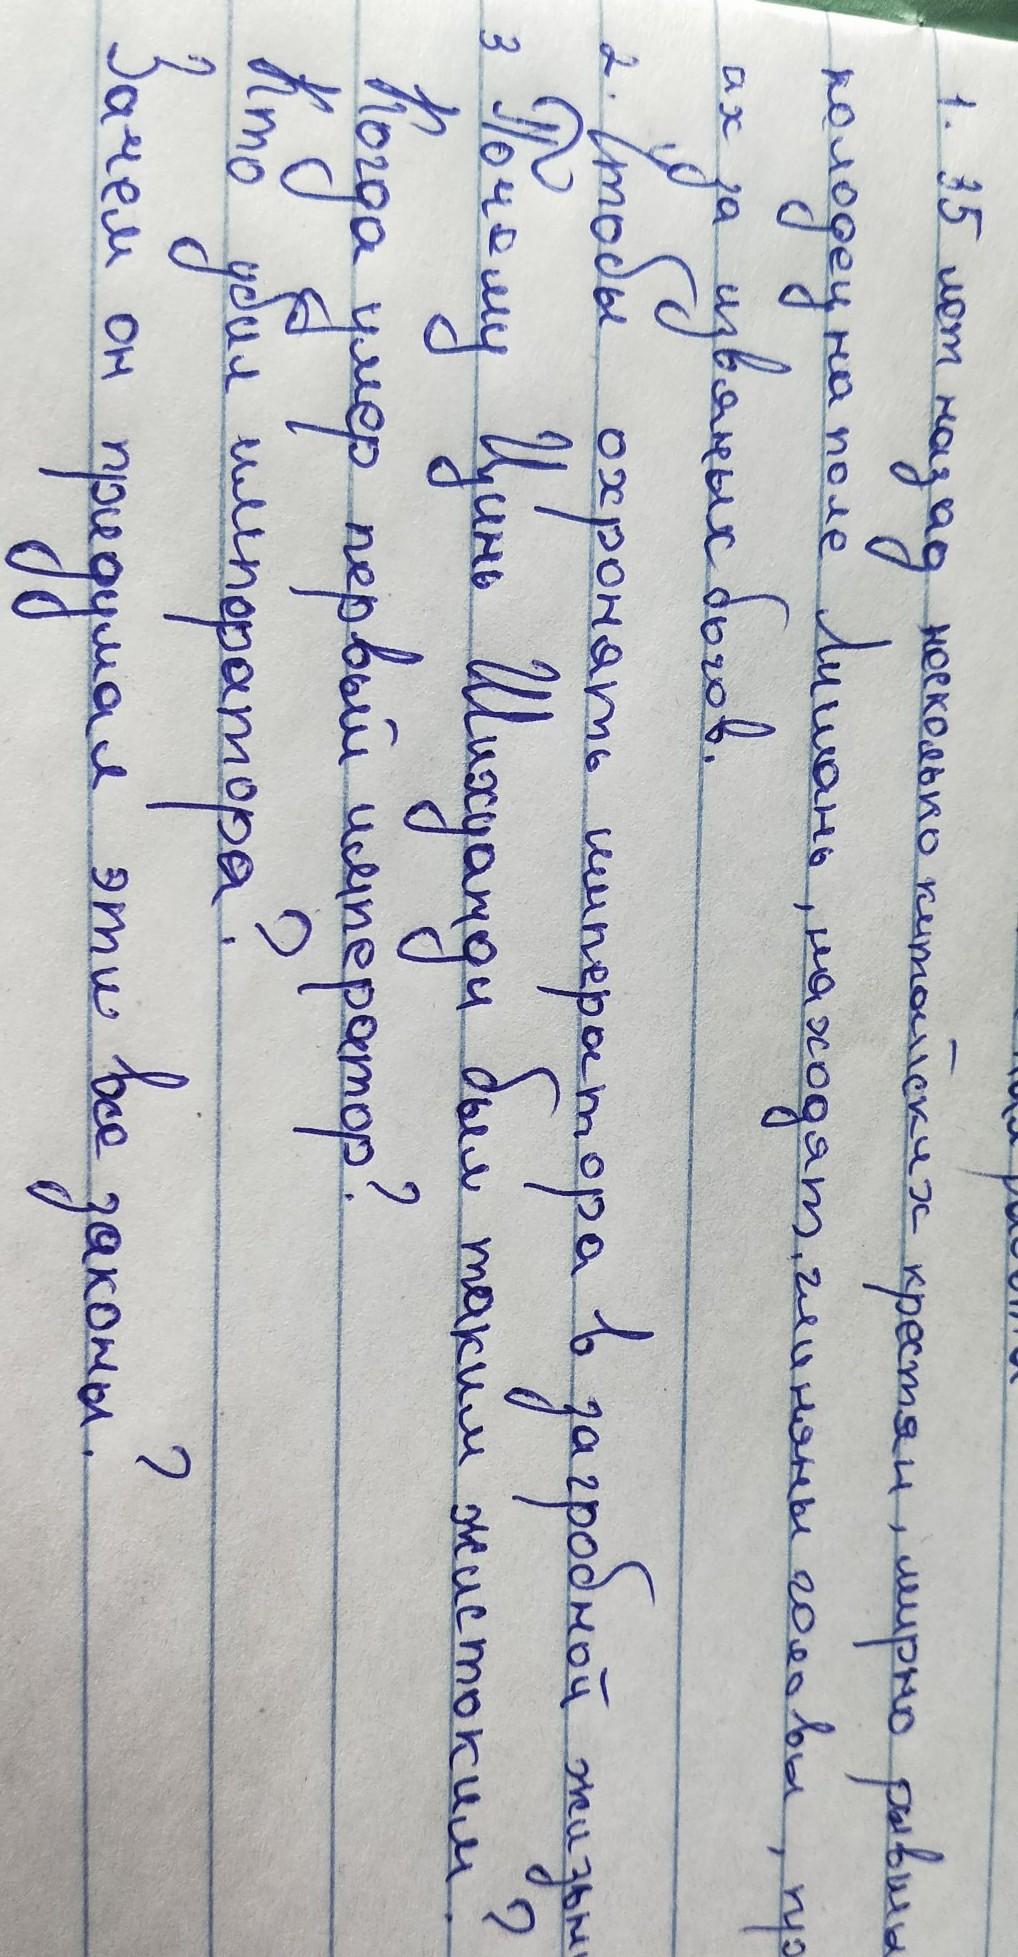 1. 35 лет назад несколько китайских крестян, мирно рывшы
колодец на поле Лишань, находят глиняны головы, пу
их за извяных богов.
2. Чтобы охронять императора в загробной жизьни
3 Почему Цинь Шихуатди был таким жистоким?
Когда умер первый император?
Кто убил импоратора?
Зачем он придумал эти все законы?